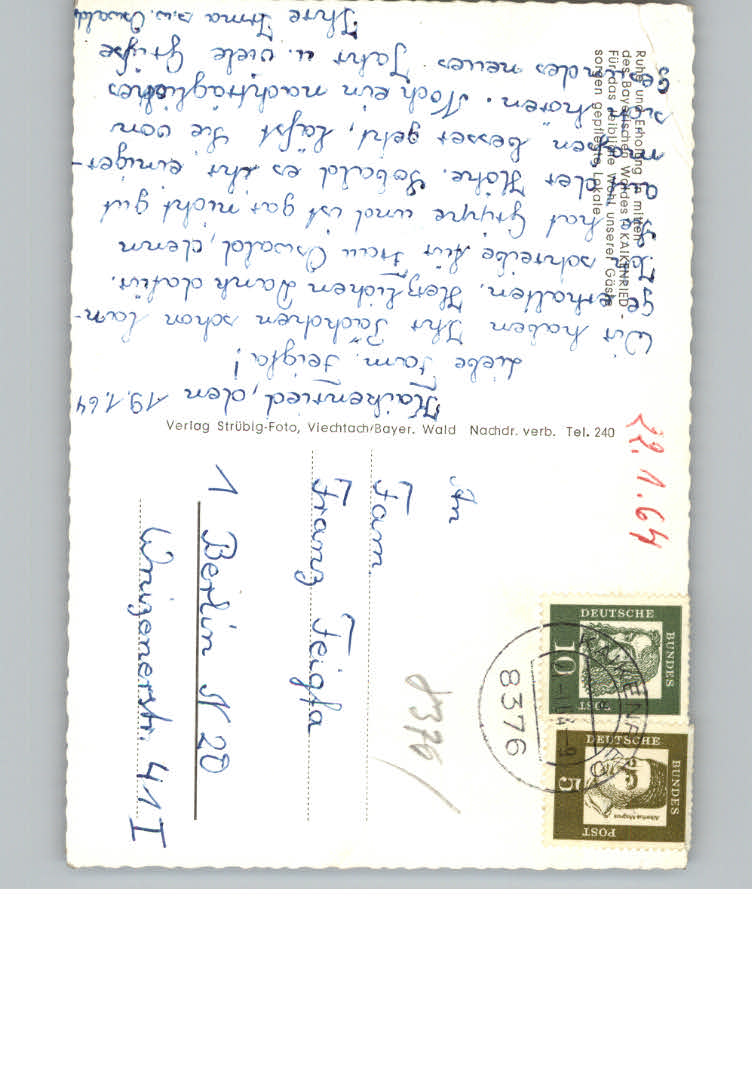 Ruhe und Erholung in mitten
des Bayerischen Waldes - KAIKENRIED -
Für das leibliche Wohl unserer Gäste
sorgen gepflegte Lokale
Kaikenried, den 19.1.64
Liebe Fam. Feigfa!
Wir haben Ihr Päckchen schon lan-
ge erhalten. Herzlichen Dank dafür.
Ich schreibe für Frau Oswald, denn
Sie hat Grippe und ist gar nicht gut
auf der Höhe. Sobald es ihr einiger-
maßen besser geht, läßt Sie von
sich hören. Noch ein nachträgliches
gesundes neues Jahr u. viele Grüße
Ihre Irma u.w. Oswald
Verlag Strübig-Foto, Viechtach/Bayer. Wald Nachdr. verb. Tel. 240
22.1.64
An
Fam.
Franz Feigfa
1 Berlin N 20
41 I
8376
DEUTSCHE
BUNDES
POST
10
DEUTSCHE
BUNDES
POST
5
Albertus Magnus
8376